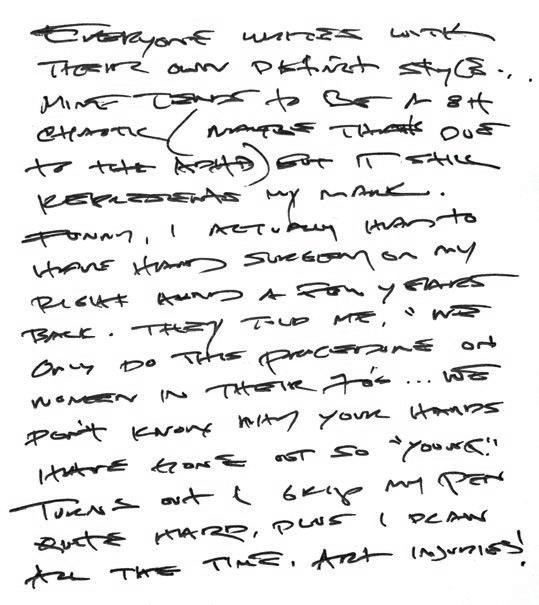 EVERYONE WRITES WITH
THEIR OWN DISTINCT STYLE...
MINE TENDS to BE A BIT
CHAOTIC (MAYBE THAT'S DUE
to the ADHD) BUT IT STILL
REPRESENTS MY MARK.
FUNNY, I ACTUALLY HAD TO
HAVE HAND SURGERY ON MY
RIGHT HAND A FEW YEARS
BACK. THEY TOLD ME, "WE
ONLY DO THIS PROCEDURE ON
WOMEN IN THEIR 70's... WE
DON'T KNOW WHY YOUR HANDS
HAVE GONE OUT SO "YOUNG."
TURNS OUT I GRIP MY PEN
QUITE HARD, PLUS I DRAW
ALL THE TIME. ART INJURIES!